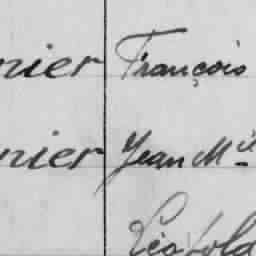 nier François
nier Jean Mie
Léopold